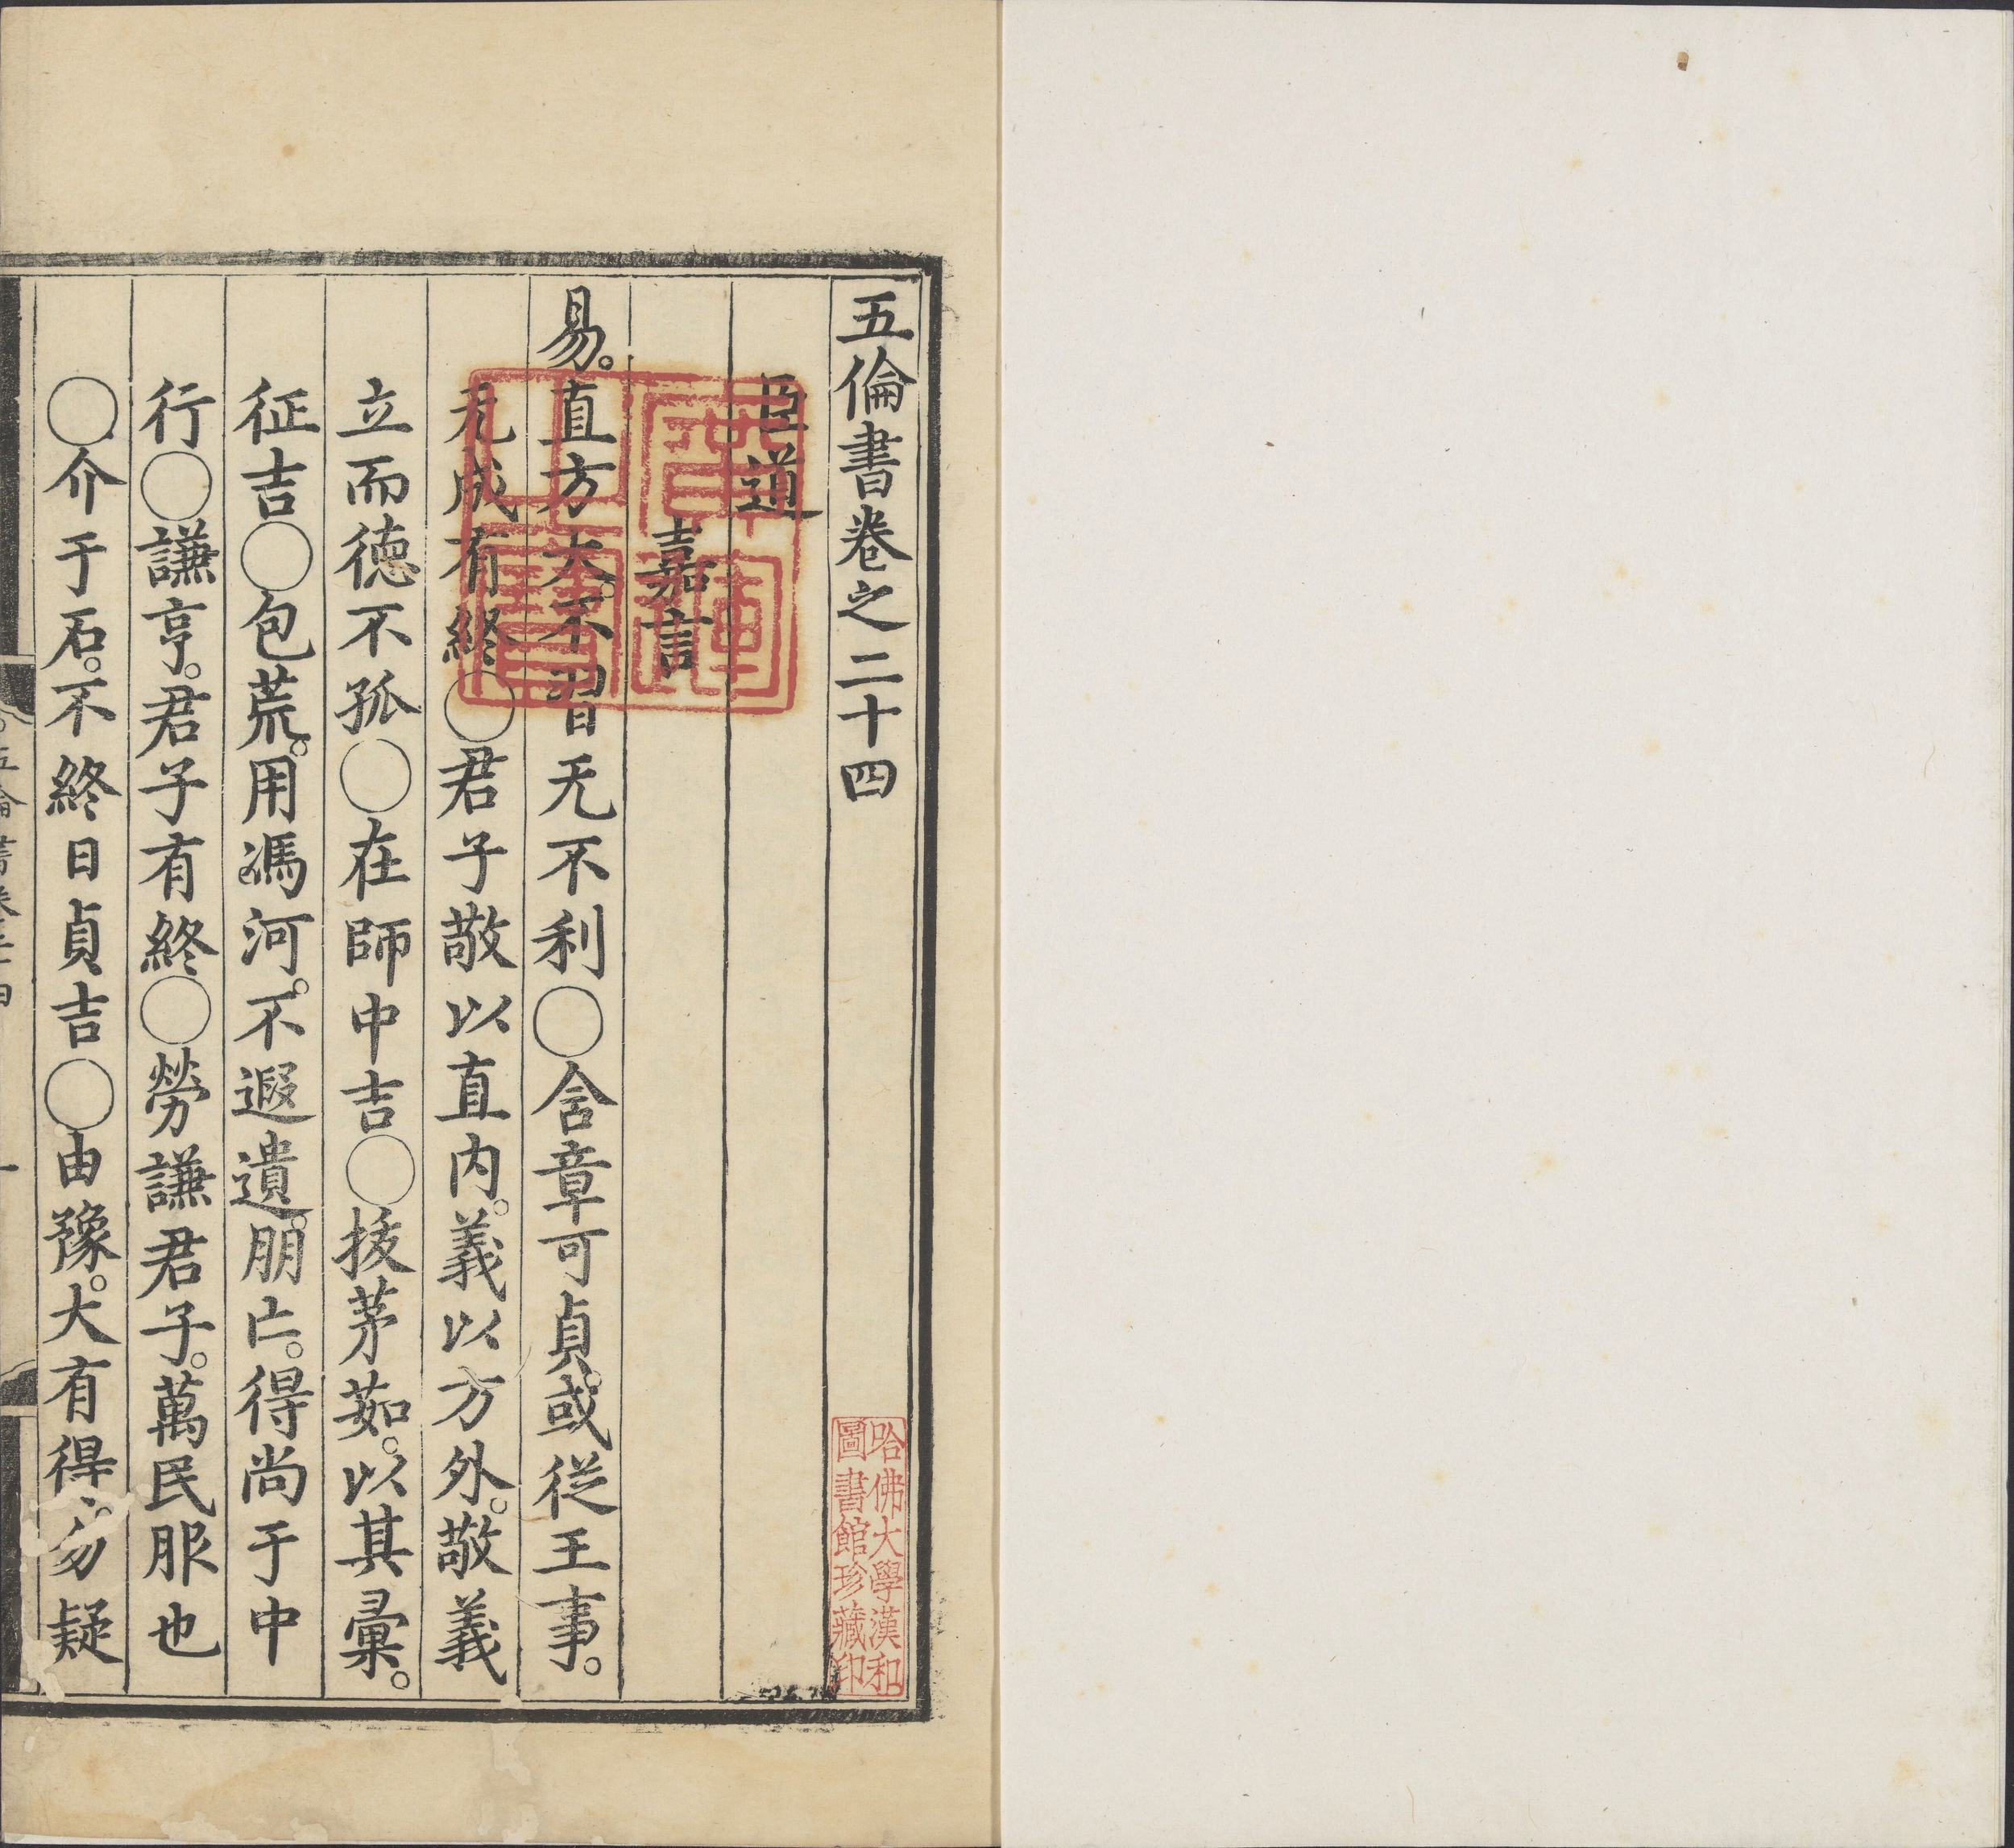 五倫書卷之二十四
臣道
嘉言
易。直方大。不習无不利〇含章可貞。或從王事。
无成有終〇君子敬以直内。義以方外。敬義
立而德不孤〇在師中吉〇拔茅茹。以其彙。
征吉〇包荒。用馮河。不遐遺。朋亡。得尚于中
行〇謙亨。君子有終〇勞謙君子。萬民服也
〇介于石。不終日貞吉〇由豫。大有得。勿疑
五倫書卷二十四
一
哈佛大學漢和
圖書館珍藏印